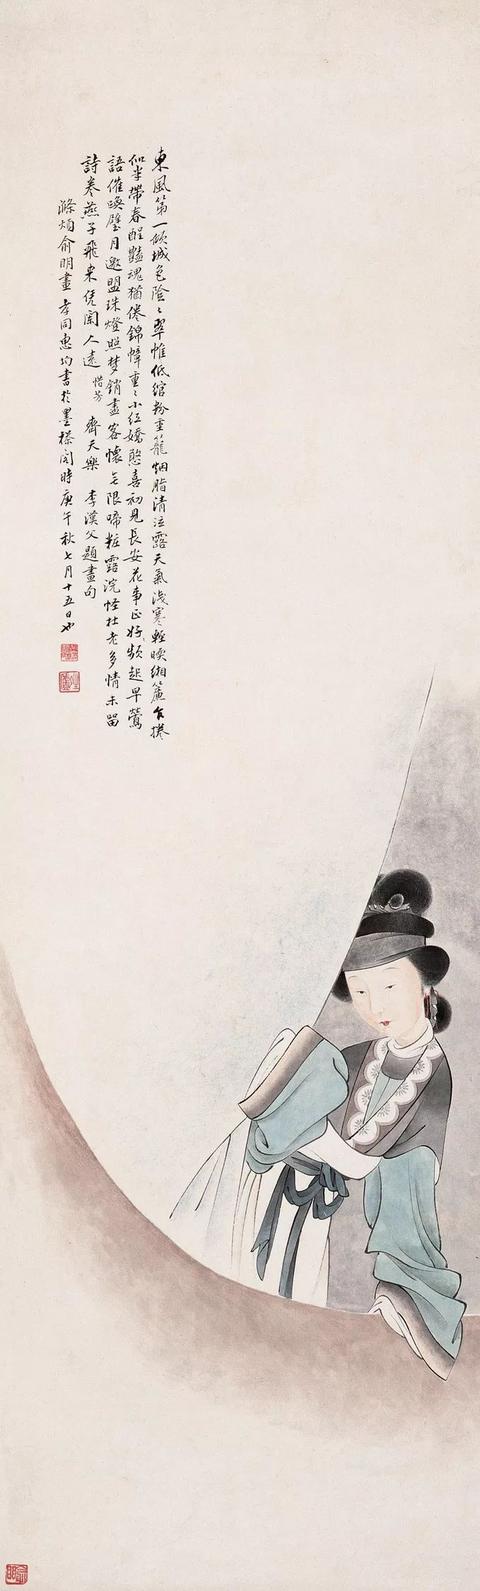 東風第一傾城色陰〻翠帷低綰粉重籠烟脂清泣露天氣淺寒輕暎緗簾乍捲
似半帶春酲豔魂猶倦錦幛重〻小紅嬌憨喜初見長安花事正好頻起早鶯
語催喚璧月邀盟珠燈照夢銷盡客懷无限啼粧露浣怪杜老多情未留
詩卷燕子飛來凭闌人遠 惜芳 齊天樂 李漢父題畫句
滌煩俞明畫 孝同惠均書於墨槎閣時庚午秋七月十五日也